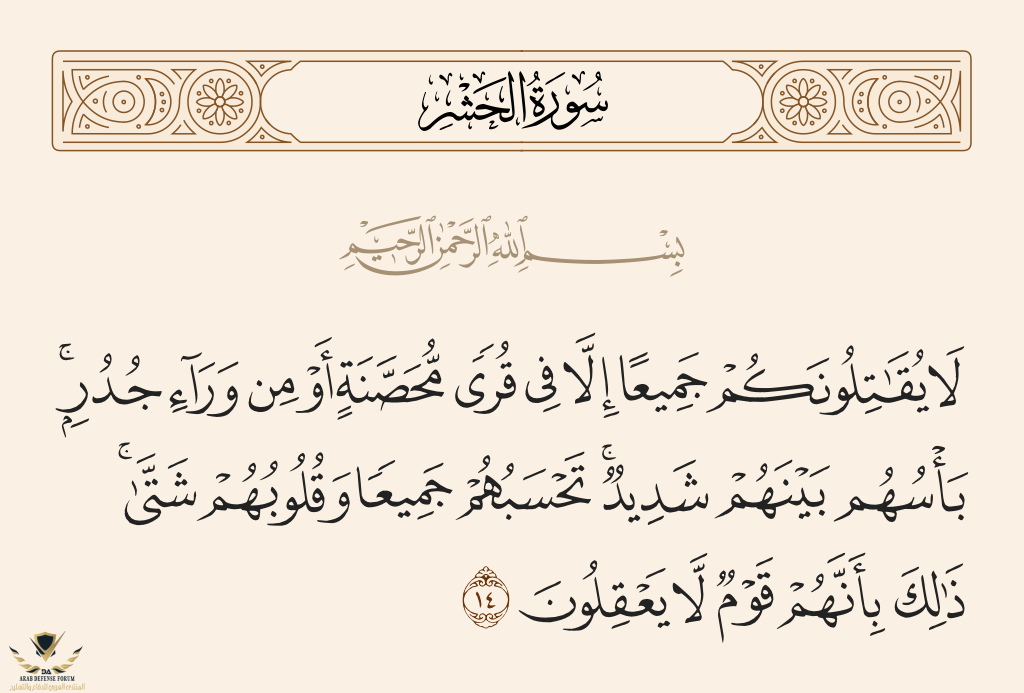 سُورَةُ الحَشْرِ
بِسْمِ ٱللَّهِ ٱلرَّحْمَٰنِ ٱلرَّحِيمِ
لَا يُقَٰتِلُونَكُمْ جَمِيعًا إِلَّا فِى قُرًى مُّحَصَّنَةٍ أَوْ مِن وَرَآءِ جُدُرٍۭ ۚ
بَأْسُهُم بَيْنَهُمْ شَدِيدٌ ۚ تَحْسَبُهُمْ جَمِيعًا وَقُلُوبُهُمْ شَتَّىٰ ۚ
ذَٰلِكَ بِأَنَّهُمْ قَوْمٌ لَّا يَعْقِلُونَ ١٤
DA
ARAB DEFENSE FORUM
المنتدى العربي للدفاع والتسليح